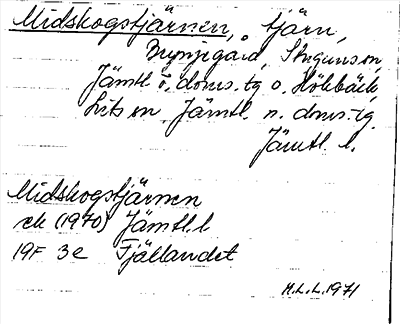 Midskogstjärnen, tjärn,
Brynjegård, Stuguns sn,
Jämtl. ö. doms.-tg o. Höhbäck,
Lits sn Jämtl. n. doms.-tg.
Jämtl. l.
Midskogstjärnen
ek (1970) Jämtl. l
19F 3e Fjällandet
M.L.L. 1971